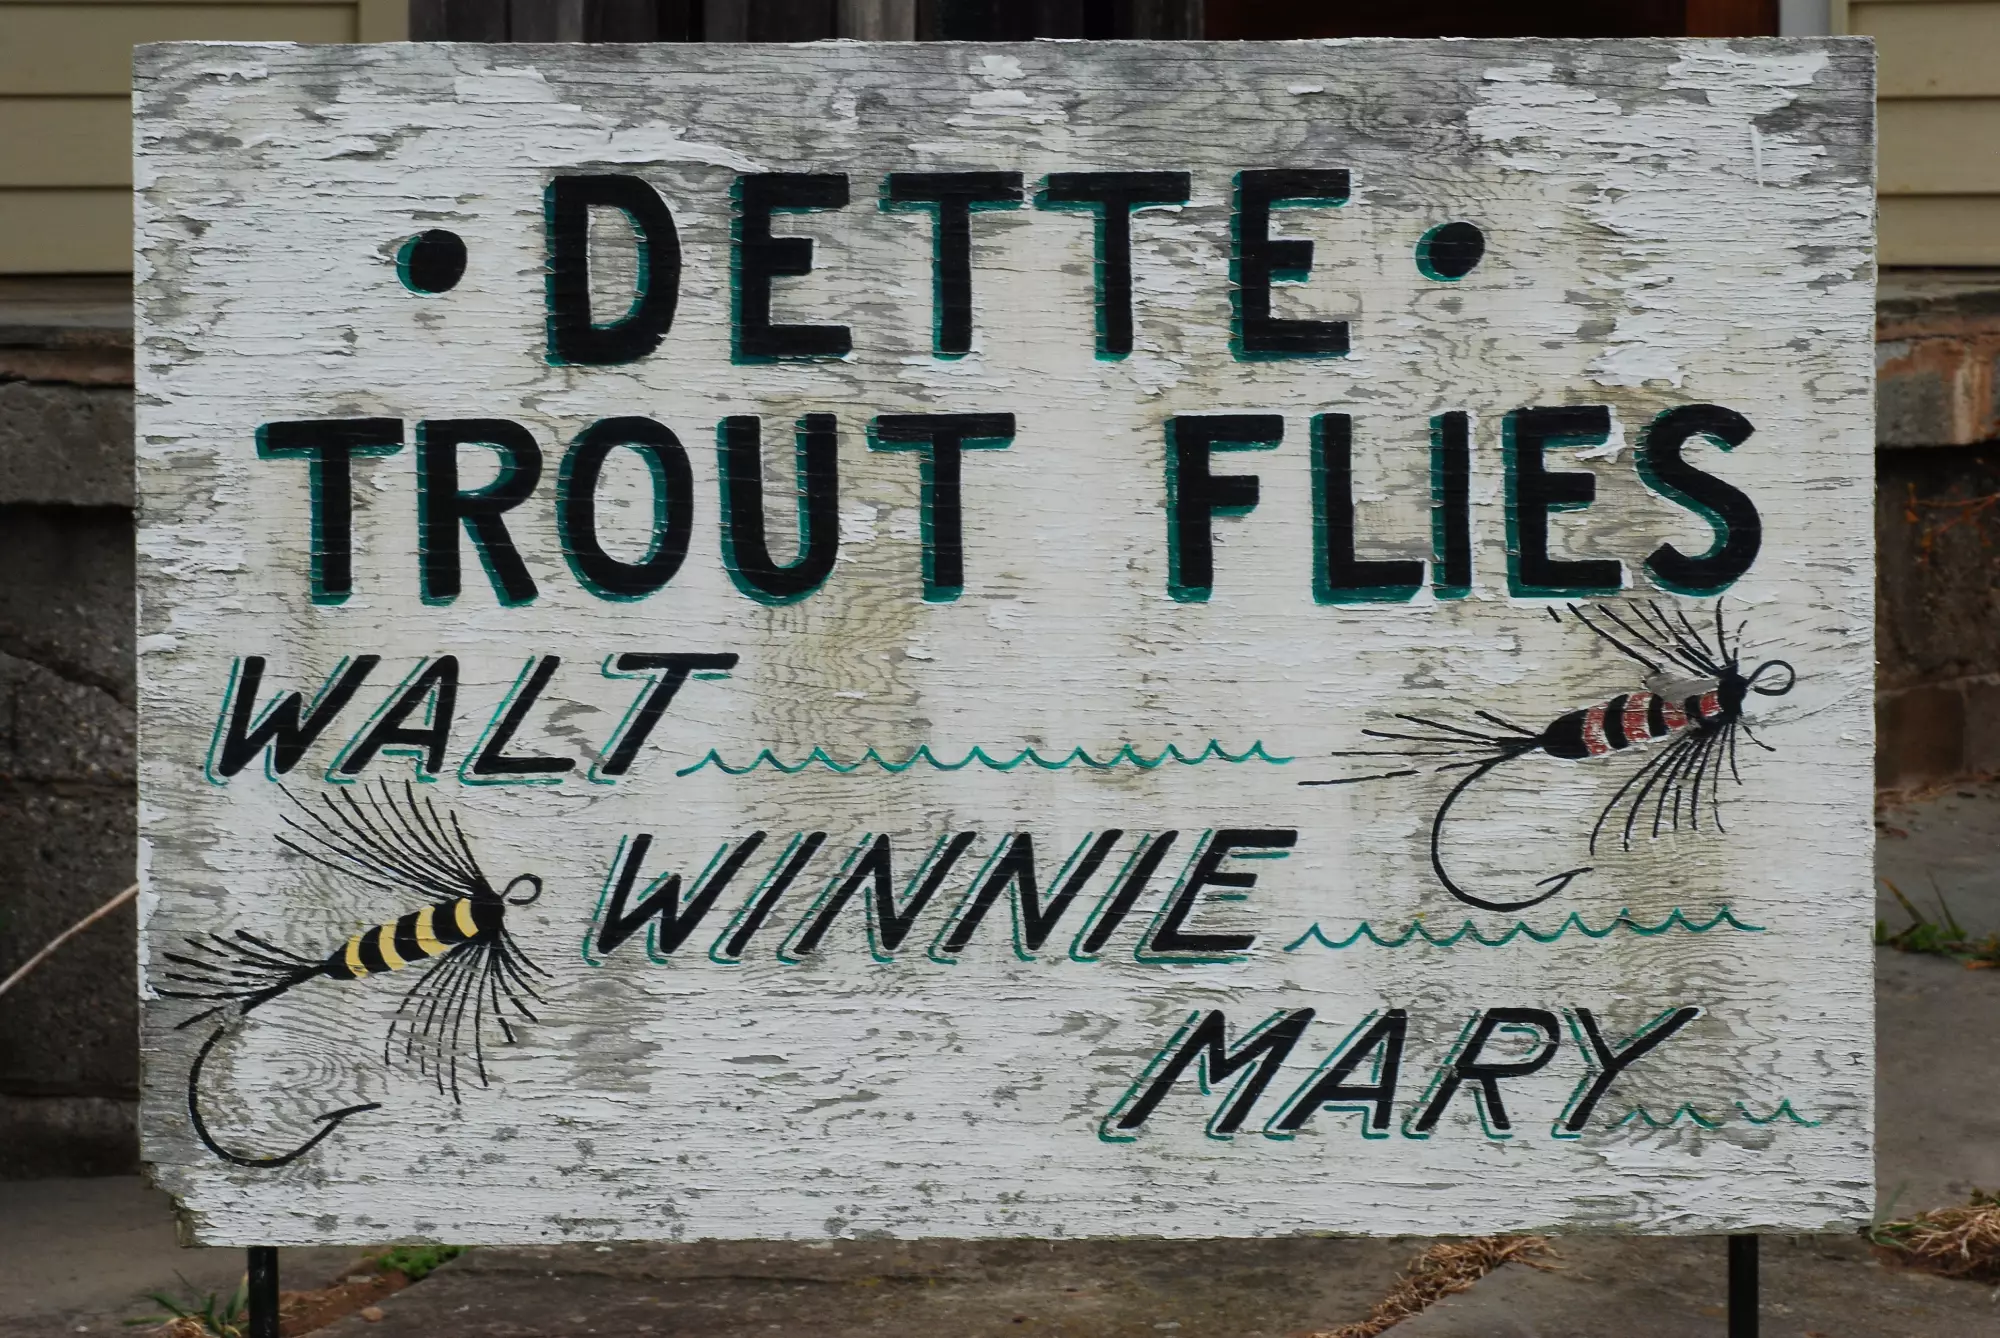 • DETTE •
TROUT FLIES
WALT
WINNIE
MARY